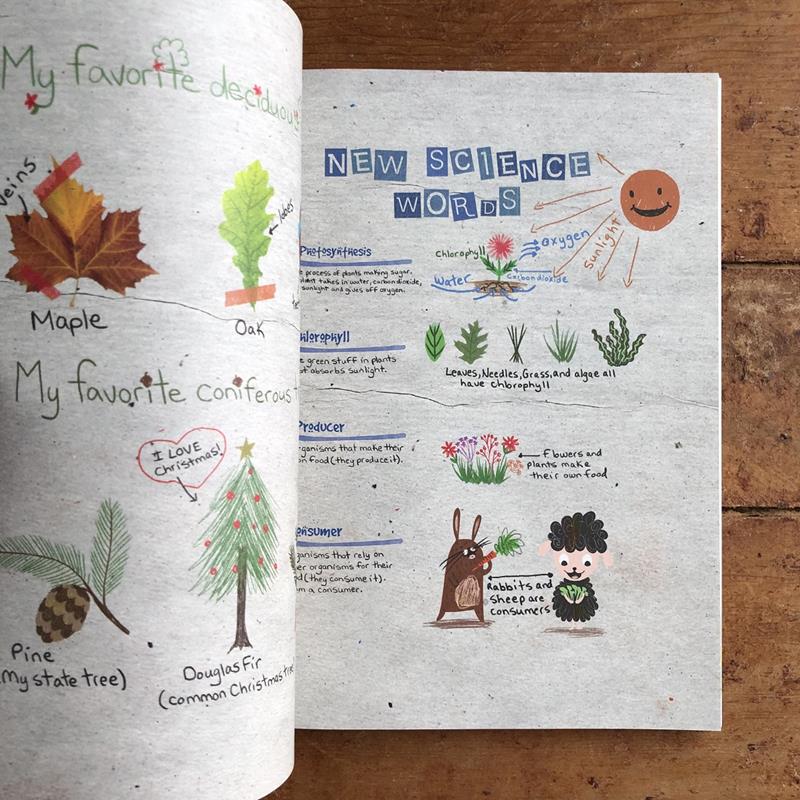 My favorite deciduous
veins
lobes
Maple
Oak
My favorite coniferous
I LOVE
Christmas!
Pine
My state tree)
Douglas Fir
(common Christmas tree
NEW SCIENCE
WORDS
Photosynthesis
process of plants making sugar.
takes in water, carbondioxide,
sunlight and gives off oxygen.
Chlorophyll
Oxygen
Water
Carbondioxide
Sunlight
hlorophyll
green stuff in plants
absorbs sunlight.
Leaves, Needles, Grass, and algae all
have chlorophyll
Producer
ganisms that make their
food (they produce it).
flowers and
plants make
their own food
onsumer
ganisms that rely on
er organisms for their
(they consume it).
a consumer.
Rabbits and
Sheep are
consumers